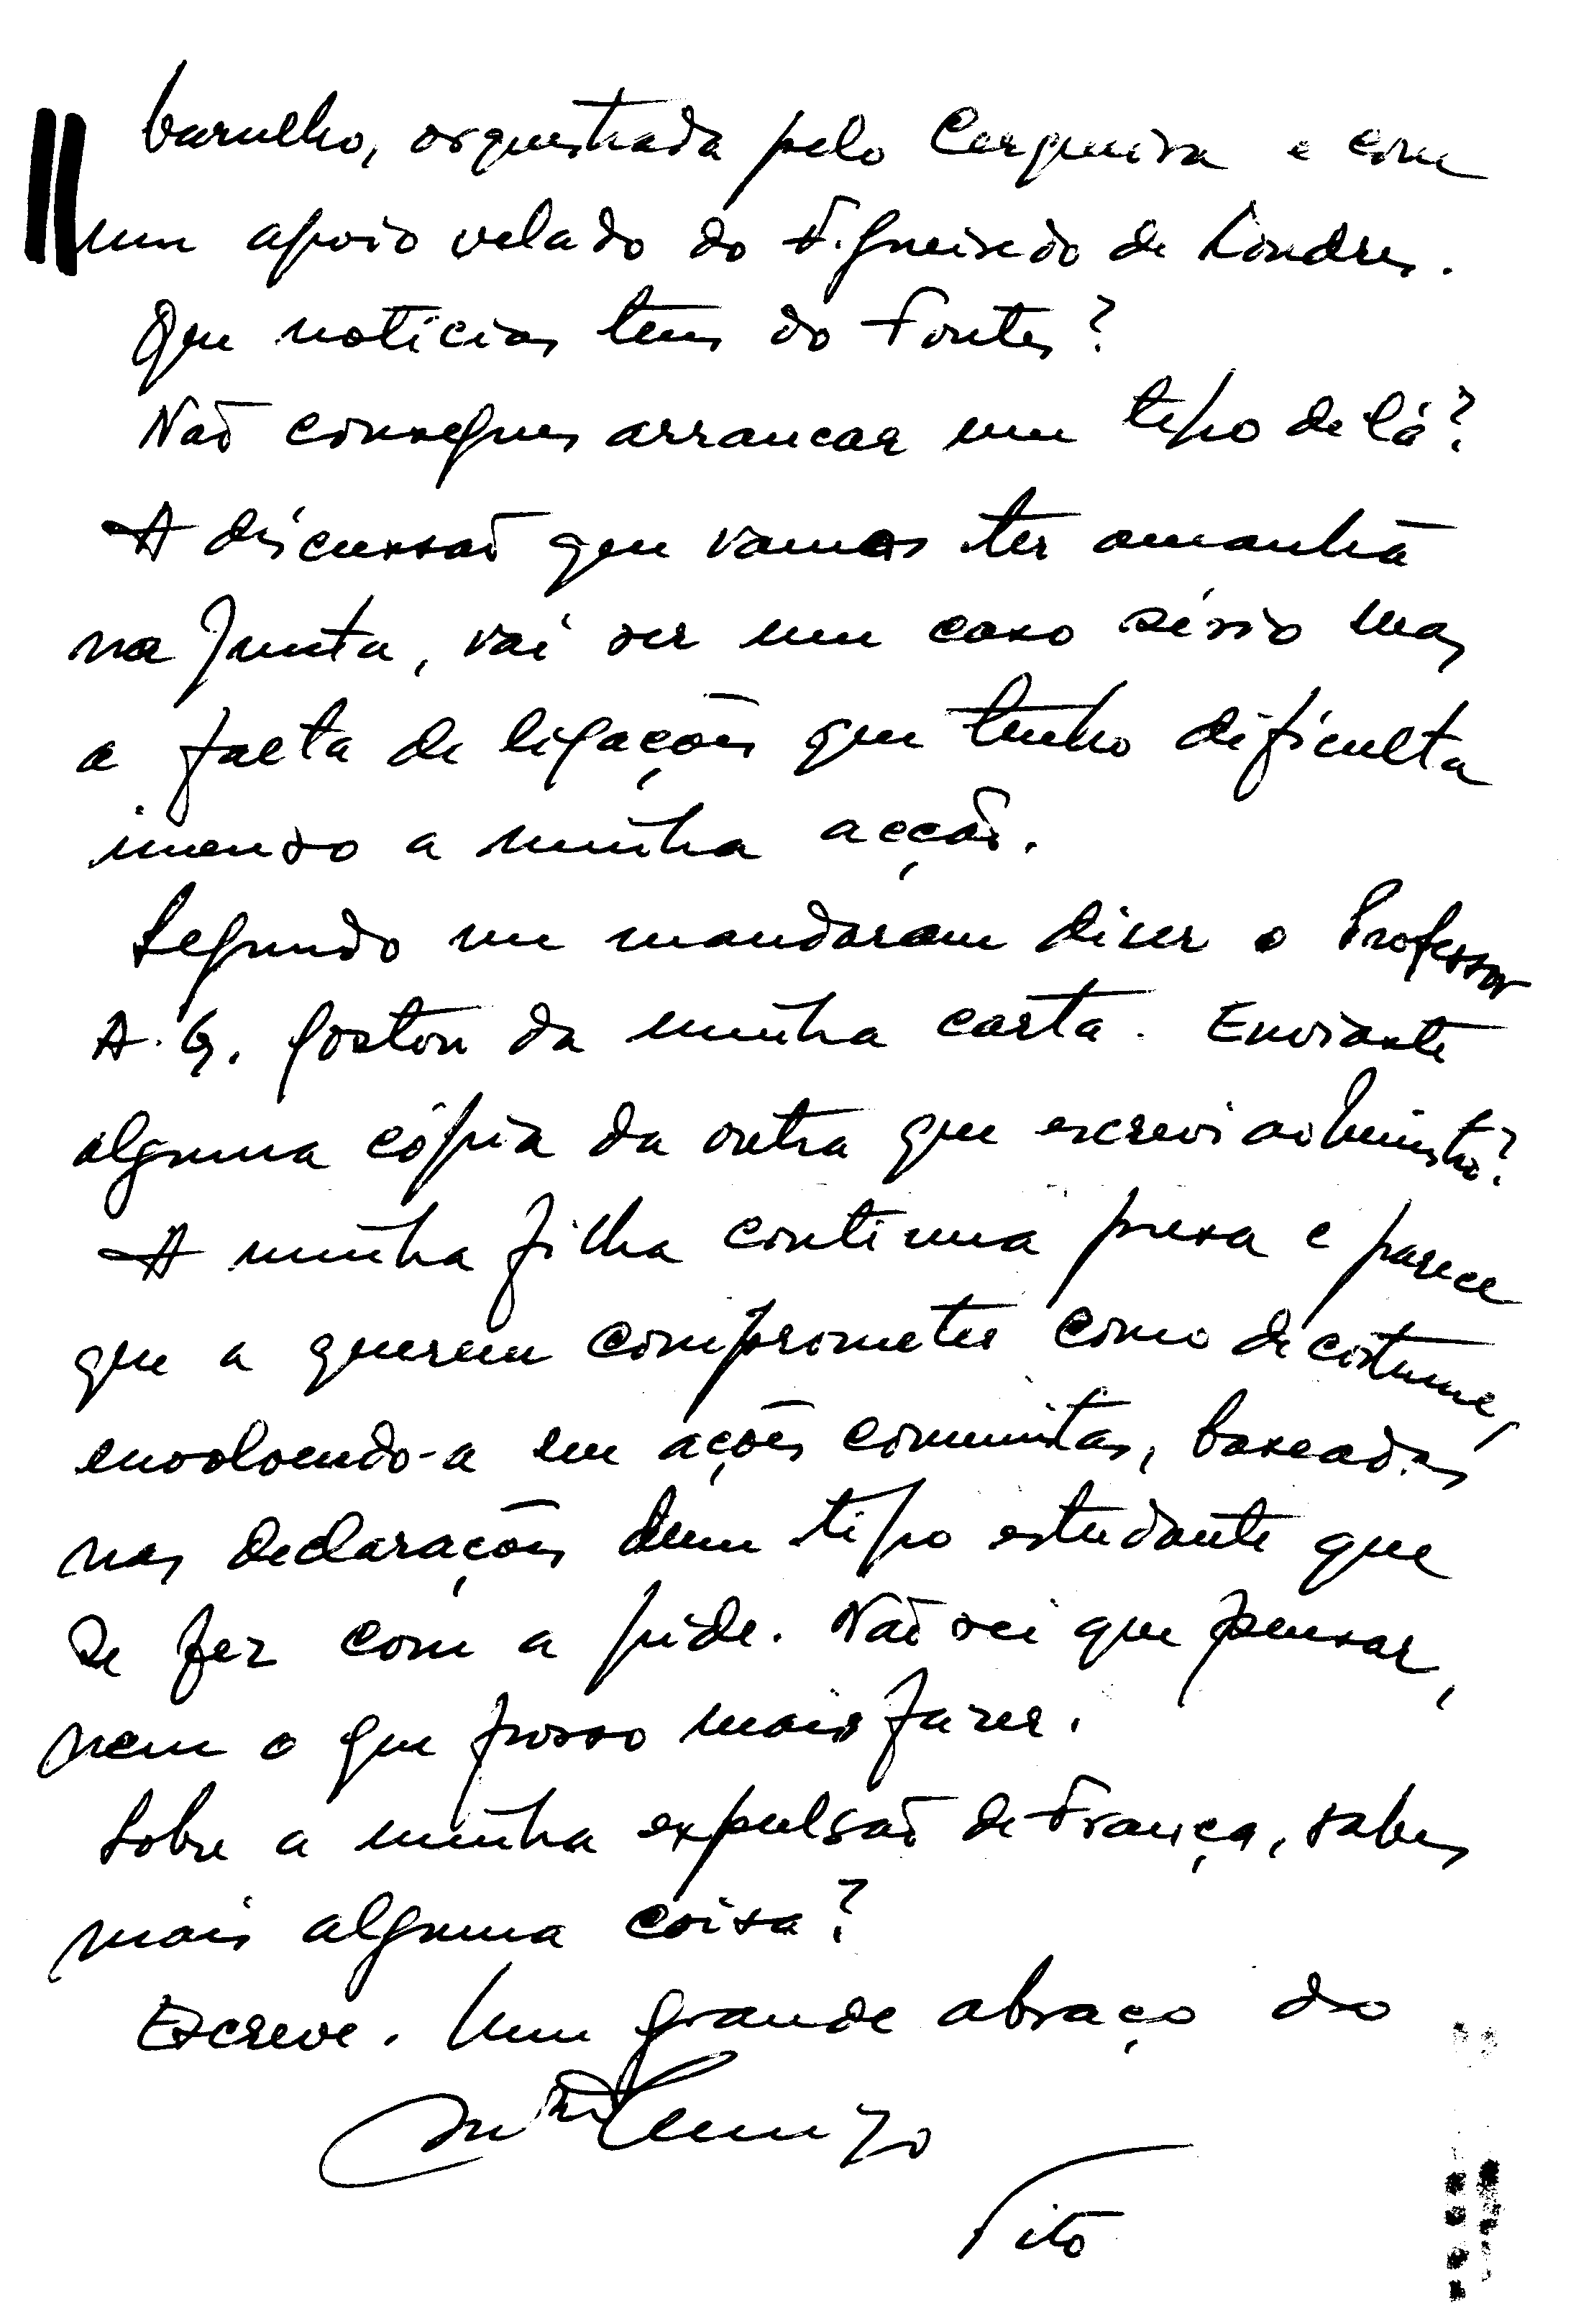 barulho, orquestrada pelo Cerqueira e com
um apoio velado do Figueiredo de Londres.
Que noticias tens do Fontes?
Não consegues arrancar um tipo de lá?
A discussão que vamos ter amanhã
na Junta, vai ser um caso sério mas
a falta de ligações que tenho dificulta
imenso a minha acção.
Segundo me mandaram dizer o Professor
A. G. gostou da minha carta. Enviaste
alguma cópia da outra que escrevi ao Ministro?
A minha filha continua presa e parece
que a querem comprometer como de costume,
envolvendo-a em ações comunistas, baseadas
nas declarações dum tipo estudante que
se fez com a pide. Não sei que pensar,
nem o que posso mais fazer.
Sobre a minha expulsão de França, sabes
mais alguma coisa?
Escreve. Um grande abraço do
Tito